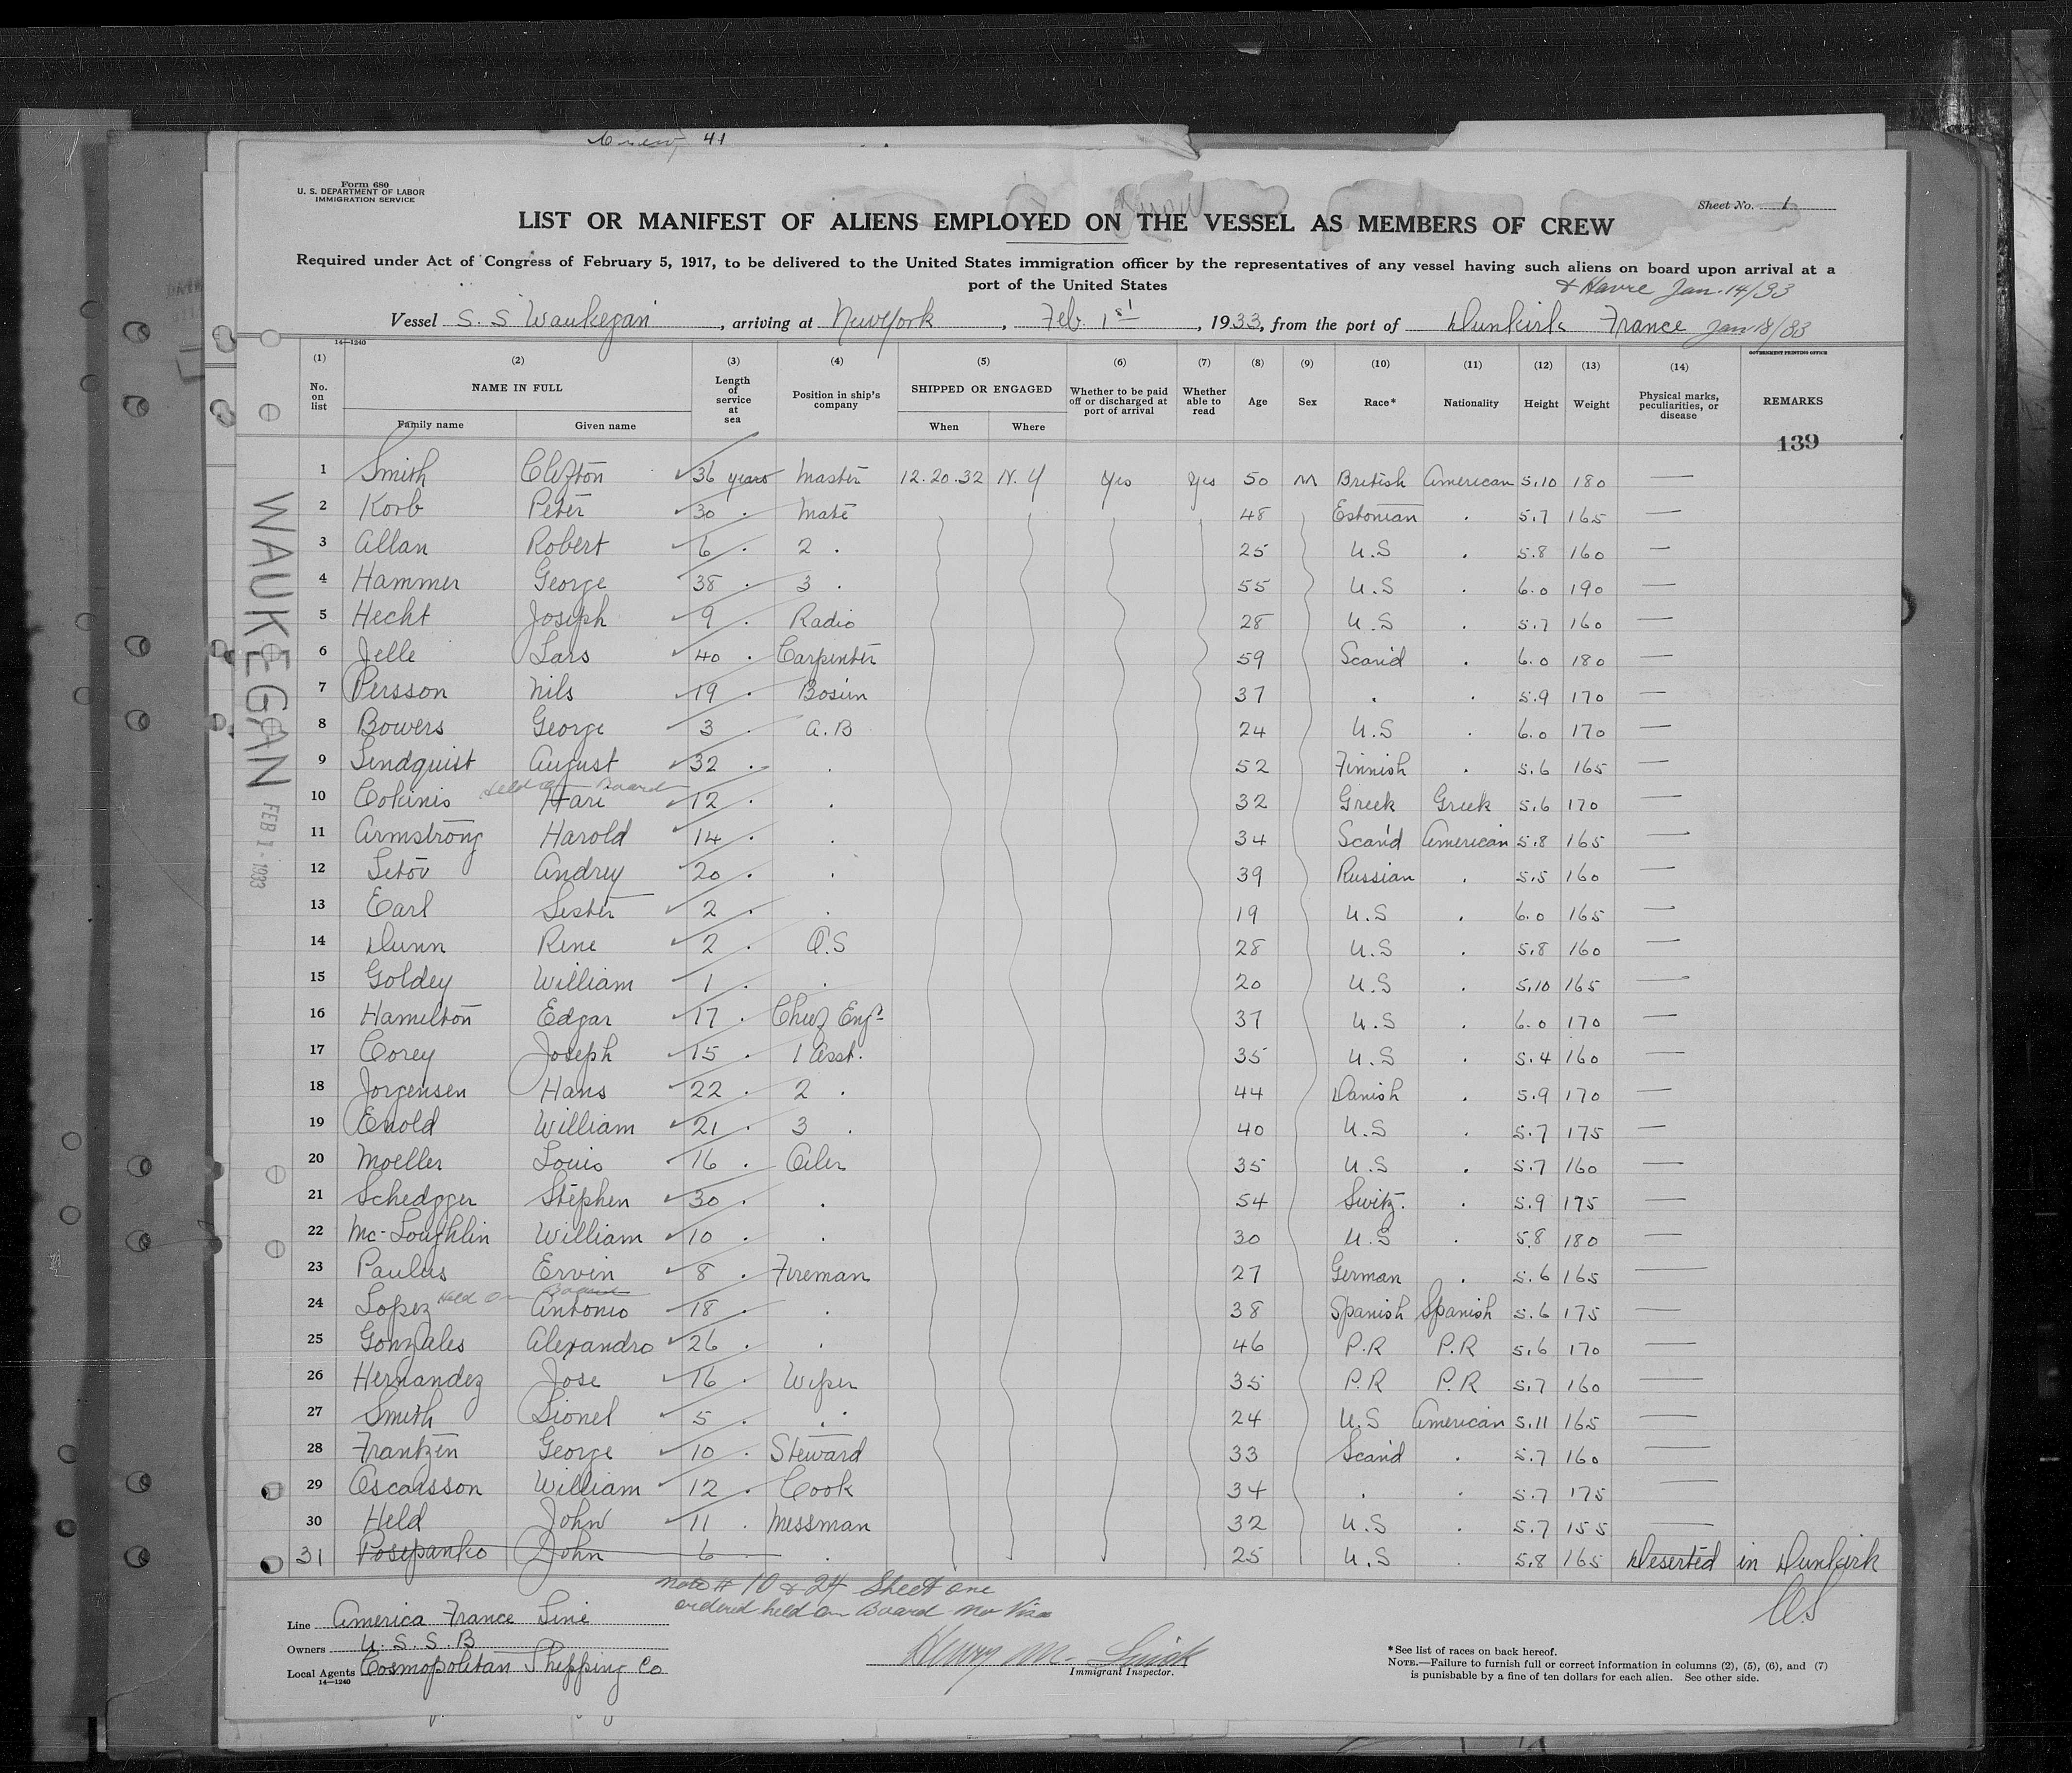 Crew 41
Form 680
U. S. DEPARTMENT OF LABOR
IMMIGRATION SERVICE
Sheet No. 1
LIST OR MANIFEST OF ALIENS EMPLOYED ON THE VESSEL AS MEMBERS OF CREW
Required under Act of Congress of February 5, 1917, to be delivered to the United States immigration officer by the representatives of any vessel having such aliens on board upon arrival at a
port of the United States
& Havre Jan. 14/33
Vessel S. S Waukegan, arriving at New York, Feb. 1st, 1933, from the port of Dunkirk France Jan 18/33
14—1240
GOVERNMENT PRINTING OFFICE
(1) (2) (3) (4) (5) (6) (7) (8) (9) (10) (11) (12) (13) (14)
No. on list NAME IN FULL Length of service at sea Position in ship's company SHIPPED OR ENGAGED Whether to be paid off or discharged at port of arrival Whether able to read Age Sex Race* Nationality Height Weight Physical marks, peculiarities, or disease REMARKS
Family name Given name When Where
139
1 Smith Clifton 36 years Master 12.20.32 N.Y Yes Yes 50 M British American 5.10 180 —
2 Korb Peter 30 . Mate 48 Estonian . 5.7 165 —
3 Allan Robert 6 . 2 . 25 U.S . 5.8 160 —
4 Hammer George 38 . 3 . 55 U.S . 6.0 190 —
5 Hecht Joseph 9 . Radio 28 U.S . 5.7 160 —
6 Jelle Lars 40 . Carpenter 59 Scand . 6.0 180 —
7 Persson Nils 19 . Bosun 37 . . 5.9 170 —
8 Bowers George 3 . A.B 24 U.S . 6.0 170 —
9 Lindquist August 32 . . 52 Finnish . 5.6 165 —
Held On Board
10 Cokinis Hari 12 . . 32 Greek Greek 5.6 170 —
11 Armstrong Harold 14 . . 34 Scand American 5.8 165 —
12 Setov Andrey 20 . . 39 Russian . 5.5 160 —
13 Earl Lester 2 . . 19 U.S . 6.0 165 —
14 Dunn Rene 2 . O.S 28 U.S . 5.8 160 —
15 Goldey William 1 . . 20 U.S . 5.10 165 —
16 Hamilton Edgar 17 . Chief Engr 37 U.S . 6.0 170 —
17 Corey Joseph 15 . 1 Asst. 35 U.S . 5.4 160 —
18 Jorgensen Hans 22 . 2 . 44 Danish . 5.9 170 —
19 Enold William 21 . 3 . 40 U.S . 5.7 175 —
20 Moeller Louis 16 . Oiler 35 U.S . 5.7 160 —
21 Schedgger Stephen 30 . . 54 Switz. . 5.9 175 —
22 Mc-Loughlin William 10 . . 30 U.S . 5.8 180 —
23 Paulus Ervin 8 . Fireman 27 German . 5.6 165 —
Held On Board
24 Lopez Antonio 18 . . 38 Spanish Spanish 5.6 175 —
25 Gonzales Alexandro 26 . . 46 P.R P.R 5.6 170 —
26 Hernandez Jose 16 . Wiper 35 P.R P.R 5.7 160 —
27 Smith Lionel 5 . . 24 U.S American 5.11 165 —
28 Frantzen George 10 . Steward 33 Scand . 5.7 160 —
29 Oscarsson William 12 . Cook 34 . . 5.7 175 —
30 Held John 11 . Messman 32 U.S . 5.7 155 —
31 Posepanko John 6 . 25 U.S . 5.8 165 Deserted in Dunkirk
WAUKEGAN
FEB 1 - 1933
Note # 10 & 24 Sheet one
ordered held on Board no Visa
Line America France Line
Owners U. S. S. B
Local Agents Cosmopolitan Shipping Co
14—1240
Immigrant Inspector.
*See list of races on back hereof.
NOTE.—Failure to furnish full or correct information in columns (2), (5), (6), and (7)
is punishable by a fine of ten dollars for each alien. See other side.